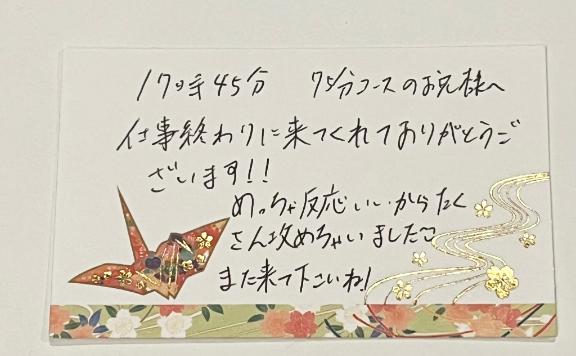 17時45分 75分コースのお兄様へ
仕事終わりに来てくれてありがとうご
ざいます!!
めっちゃ反応いいからたく
さん攻めちゃいました♡
また来て下さいね!